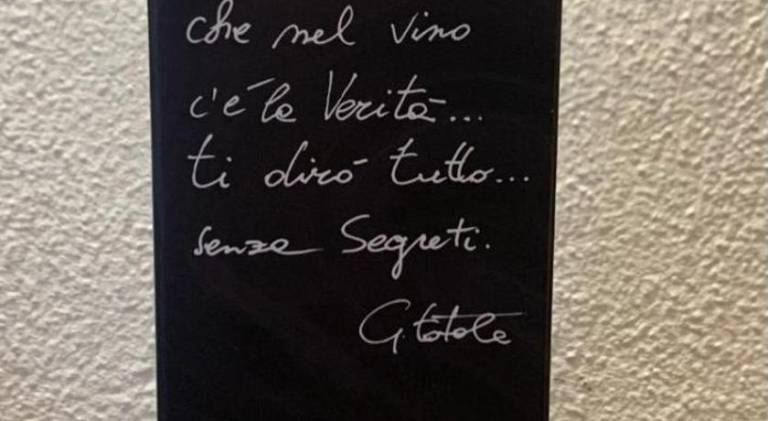 che nel vino
c'è la Verità...
ti dirò tutto...
senza Segreti.
G. Totola